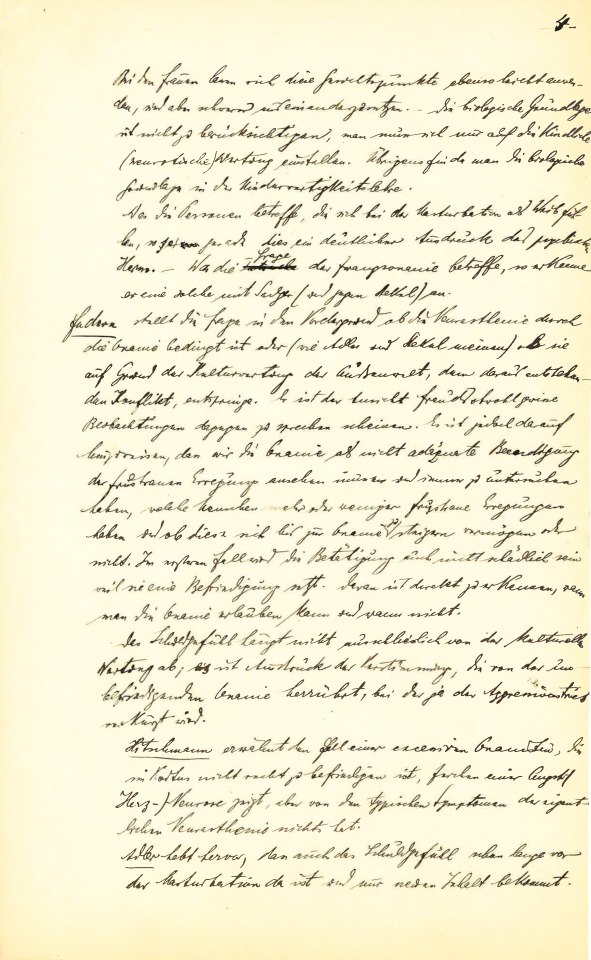 -4-
Bei den Frauen lassen sich diese Gesichtspunkte ebenso leicht anwen-
den, sind aber schwerer auseinanderzusetzen. – Die biologische Grundlage
ist nicht zu berücksichtigen, man muss sich nur auf die kindliche
(neurotische) Wertung einstellen. Übrigens finde man die biologische
Grundlage in der Minderwertigkeitslehre.
Was die Personen betreffe, die sich bei der Masturbation als Weib füh-
len, so sei gerade dies ein deutlicher Ausdruck des psychischen
Herm. – Was die Frage der Zwangsonanie betreffe, so erkenne
er eine solche mit Sadger (und gegen Stekel) an.
Federn stellt die Frage in den Vordergrund ob die Neurasthenie durch
die Onanie bedingt ist oder (wie Adler und Stekel meinen) ob sie
auf Grund der Kulturwertung der Außenwelt, dem daraus entstehen-
den Konflikt, entspringe. Es ist der Ansicht Freuds obwohl seine
Beobachtungen dagegen zu sprechen scheinen. Es ist jedoch darauf
hinzuweisen, dass wir die Onanie als nicht adäquate Beendigung
der frustranen Erregung ansehen müssen und immer zu untersuchen
haben, welche Menschen mehr oder weniger frustrane Erregungen
haben und ob diese sich bis zur Onanie zu steigern vermögen oder
nicht. Im ersteren Fall wird die Betätigung auch nicht schädlich sein
weil sie eine Befriedigung setzt. Daran ist direkt zu erkennen, wann
man die Onanie erlauben kann und wann nicht.
Das Schuldgefühl hängt nicht ausschließlich von der kulturellen
Wertung ab; es ist Ausdruck der Verstimmung, die von der un-
befriedigenden Onanie herrührt, bei der ja der Aggressionstrieb
verkürzt wird.
Hitschmann erwähnt den Fall einer excessiven Onanistin, die
im Koitus nicht recht zu befriedigen ist, Zeichen einer Angst(
Herz-) Neurose zeigt, aber von den typischen Symptomen der eigent-
lichen Neurasthenie nichts hat.
Adler hebt hervor, dass auch das Schuldgefühl schon lange vor
der Masturbation da ist und nur neuen Inhalt bekommt.